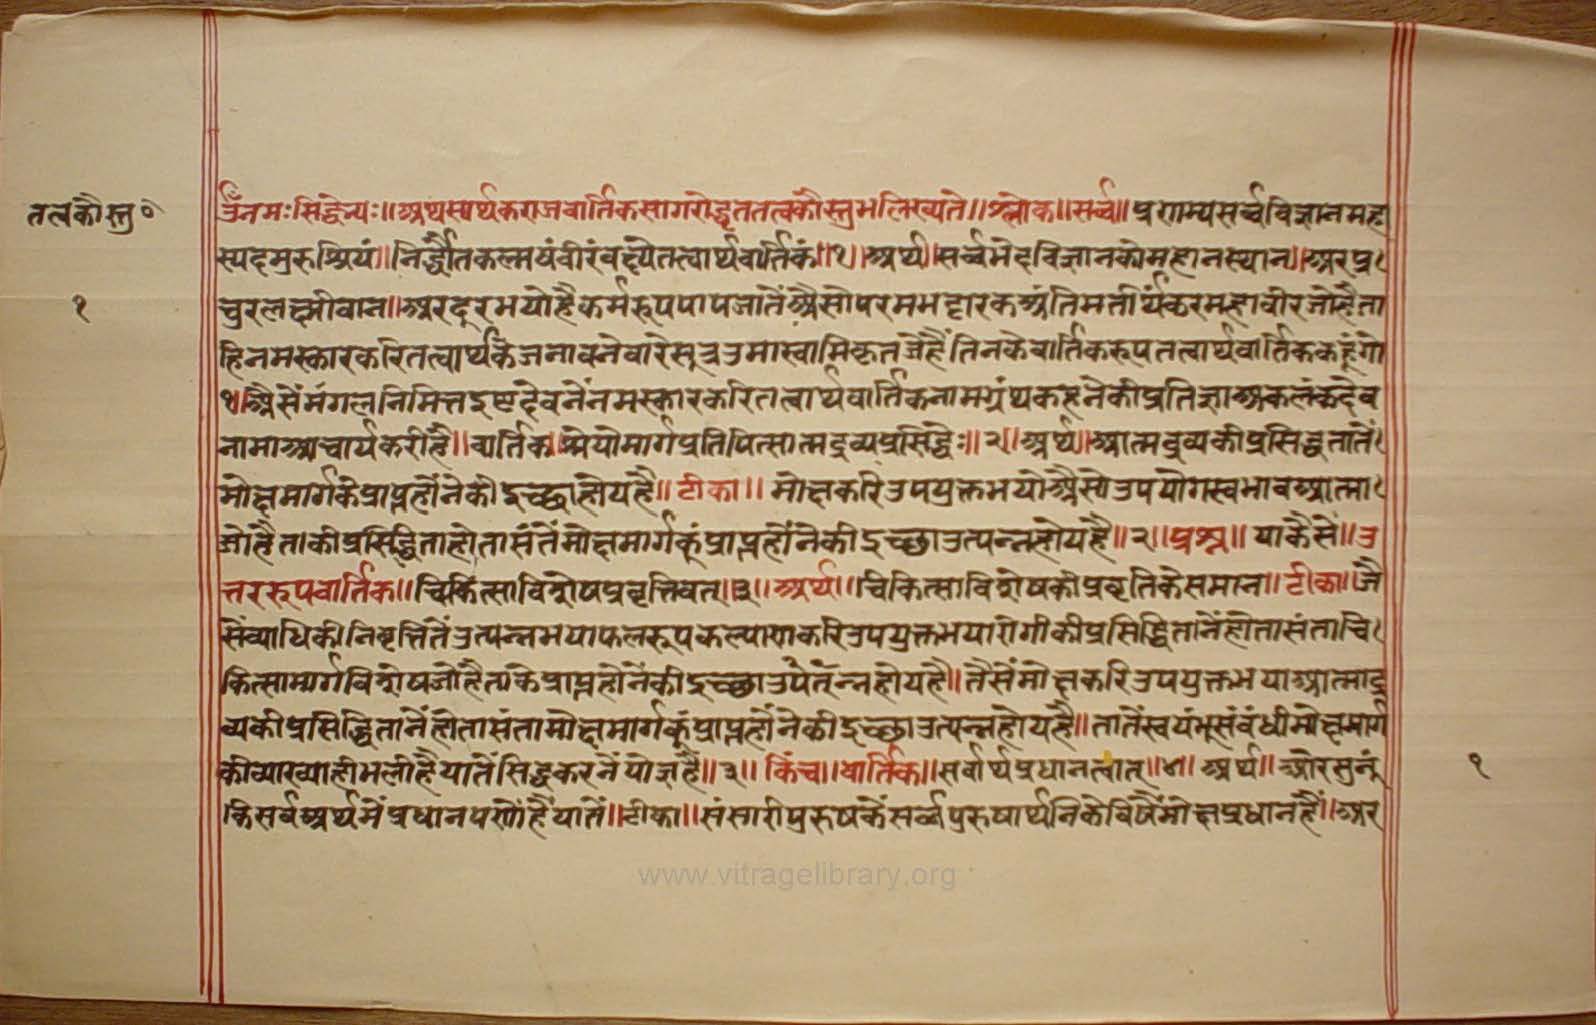 तत्वकौस्तु०
१
ॐनमःसिद्धेभ्यः॥अथस्यर्थकराजवार्तिकसागरोद्धृततत्वकौस्तुभलिख्यते॥श्लोक॥सर्व॥प्रणम्यसर्व्वविज्ञानमहा
स्पदमुरुश्रियं॥निर्द्धौतकल्मषंवीरंवक्ष्येतत्वार्थवार्तिकं॥१॥अर्थ॥सर्व्वमेंहविज्ञानकोमहानस्थान॥अरप्र
चुरलक्ष्मीवान॥अरदूरभयोहैकर्मरूपपापजातेंअैसोपरमभट्टारकअंतिमतीर्थंकरमहावीरजोहैता
हिनमस्कारकरितत्वार्थकेजनावनेवारेसूत्रउमास्वामिकृतजेहैंतिनकैवार्तिकरूपतत्वार्थवार्तिककहूंगो
१॥अैसेंमंगलनिमित्तइष्टदेवनेंनमस्कारकरितत्वार्थवार्तिकनामग्रंथकहनेकीप्रतिज्ञाअकलंकदेव
नामाआचार्यकरीहै॥वार्तिक॥श्रेयोमार्गप्रतिपित्सात्मद्रव्यप्रसिद्धेः॥२॥अर्थ॥आत्मद्रव्यकीप्रसिद्धतातें
मोक्षमार्गकेप्राप्तहोंनेकीइच्छाहोयहै॥टीका॥मोक्षकरिउपयुक्तभयोअैसोउपयोगस्वभावआत्मा
जोहैताकीप्रसिद्धिताहोतासंतेंमोक्षमार्गकूंप्राप्तहोंनेकीइच्छाउत्पन्नहोयहै॥२॥प्रश्न॥याकैसें॥उ
त्तररूपवार्तिक॥चिकित्साविशेषप्रवृत्तिवत्॥३॥अर्थ॥चिकित्साविशेषकीप्रवृतिकेसमान॥टीका॥जै
सेंव्याधिकीनिवृत्तितेंउत्पन्नभयाफलरूपकल्याणकरिउपयुक्तभयारोगीकीप्रसिद्धितानेंहोतासंताचि
कित्सामार्गविशेषजोहैताकेप्राप्तहोनेंकीइच्छाउपेतन्नहोयहै॥तैसेंमोक्षकरिउपयुक्तभयाआत्माद्र
व्यकीप्रसिद्धितानेंहोतासंतामोक्षमार्गकूंप्राप्तहोंनेकीइच्छाउत्पन्नहोयहै॥तातेंस्वयंभूसंबंधीमोक्षमार्ग
कीव्याख्याहीभलीहैयातेंसिद्धकरनेंयोज्ञहै॥३॥किंच॥वार्तिक॥सर्वार्थप्रधानत्वात्॥४॥अर्थ॥ओरसुनूं
किसर्वअर्थमेंप्रधानपणोंहैंयातें॥टीका॥संसारीपुरुषकेंसर्व्वपुरुषार्थनिकेविषैंमोक्षप्रधानहैं॥अर
१
www.vitragelibrary.org